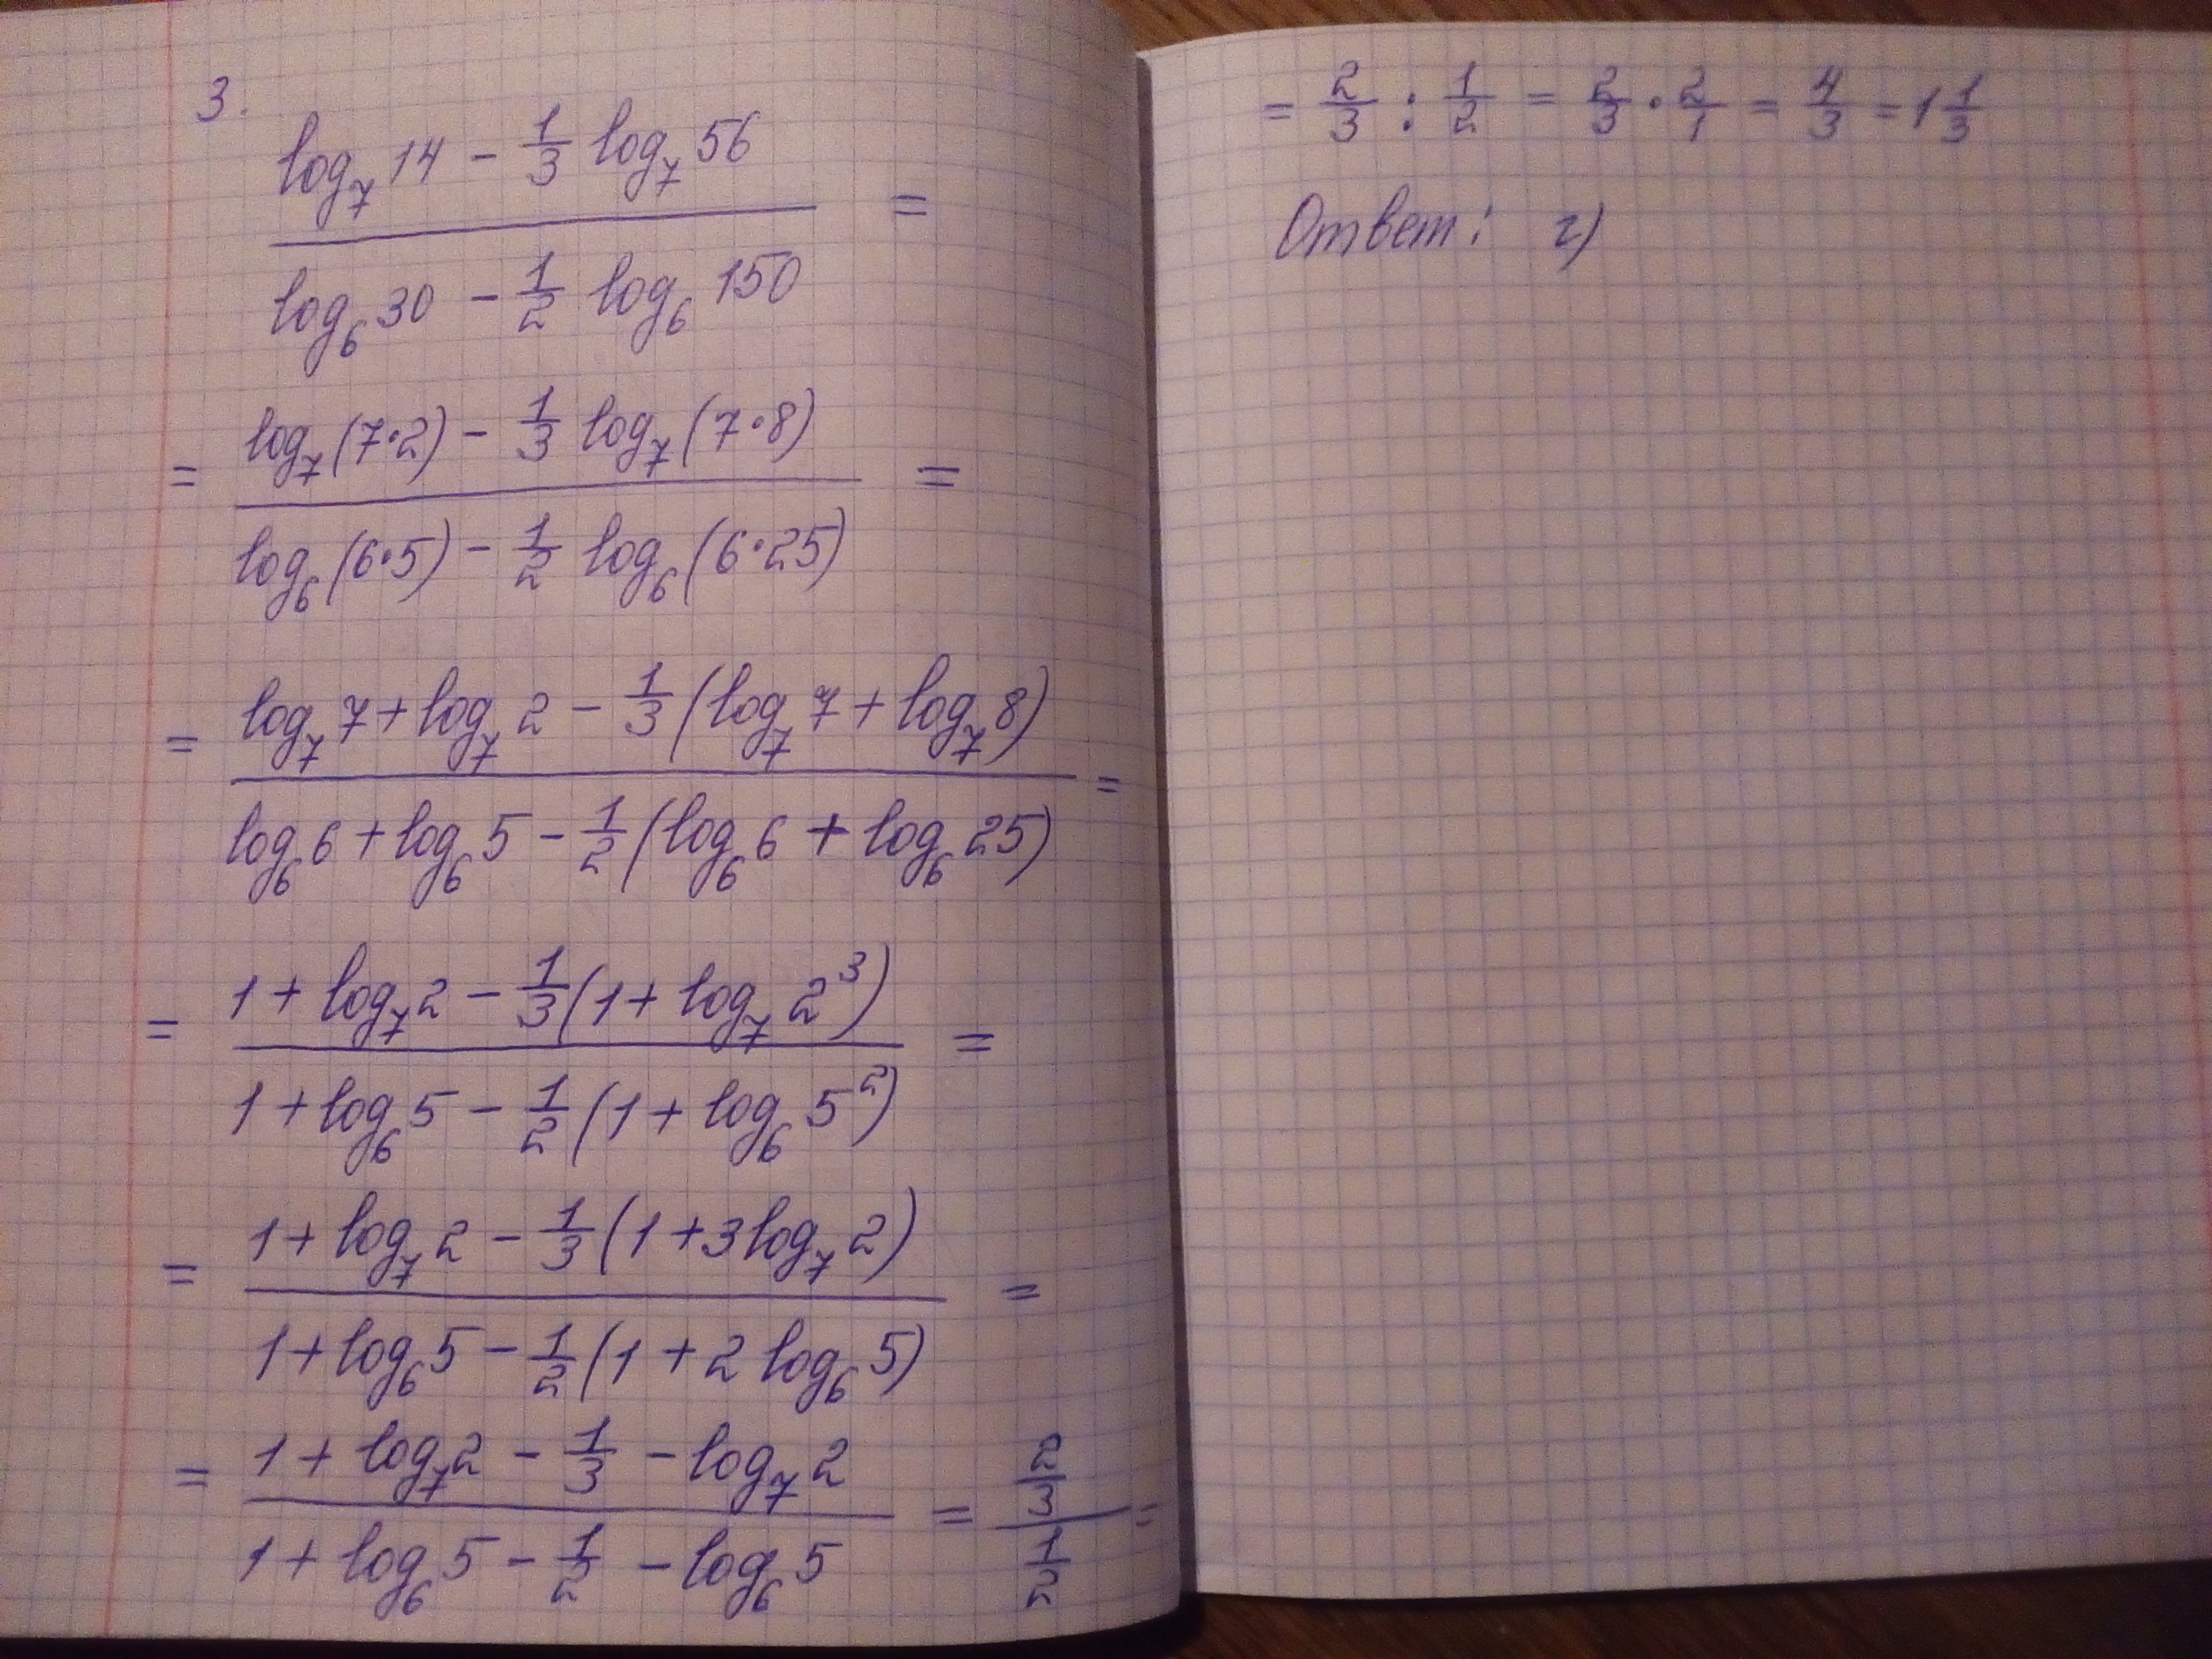 3.
log₇ 14 - 1/3 log₇ 56
=
log₆ 30 - 1/2 log₆ 150
= log₇(7·2) - 1/3 log₇(7·8) =
log₆(6·5) - 1/2 log₆(6·25)
= log₇ 7 + log₇ 2 - 1/3 (log₇ 7 + log₇ 8) =
log₆ 6 + log₆ 5 - 1/2 (log₆ 6 + log₆ 25)
= 1 + log₇ 2 - 1/3 (1 + log₇ 2³) =
1 + log₆ 5 - 1/2 (1 + log₆ 5²)
= 1 + log₇ 2 - 1/3 (1 + 3 log₇ 2) =
1 + log₆ 5 - 1/2 (1 + 2 log₆ 5)
= 1 + log₇ 2 - 1/3 - log₇ 2 = 2/3 =
1 + log₆ 5 - 1/2 - log₆ 5 1/2
= 2/3 : 1/2 = 2/3 · 2/1 = 4/3 = 1 1/3
Ответ: г)